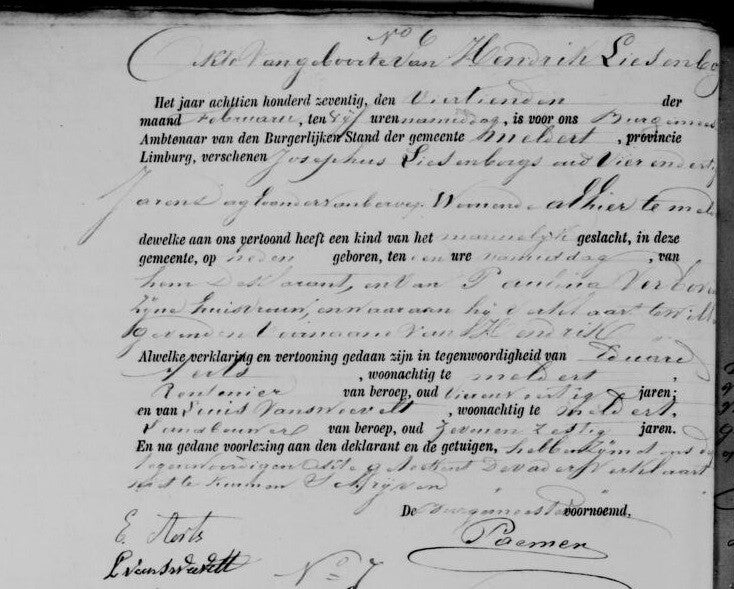 No 6
Akte van geboorte van Hendrik Liesenborg
Het jaar achttien honderd zeventig, den Viertienden der
maand Februarij, ten uren namiddag, is voor ons Burgemees
Ambtenaar van den Burgerlijken Stand der gemeente Meldert, provincie
Limburg, verschenen Josephus Liesenborgs oud Vier en dertig
Jaren Dagloonder van beroep, Woonende alhier te Meld
dewelke aan ons vertoond heeft een kind van het mannelijk geslacht, in deze
gemeente, op heden geboren, ten een ure namiddag, van
hem Deklarant, en van Paulina Verbo
zijne huisvrouw, en waaraan hij verklaart te will
geven den Voornaam van Hendrik
Alwelke verklaring en vertooning gedaan zijn in tegenwoordigheid van Eduard
Aerts, woonachtig te Meldert,
Rentenier van beroep, oud veertig jaren;
en van Louis Vanswevelt, woonachtig te Meldert,
Landbouwer van beroep, oud Zeven en Zestig jaren.
En na gedane voorlezing aan den deklarant en de getuigen, hebben zij met ons de
tegenwoordigen akte geteekent De vader verklaart
niet te kunnen Schrijven
De Burgemeester voornoemd,
E. Aerts Paemen
L vanswevelt No 7